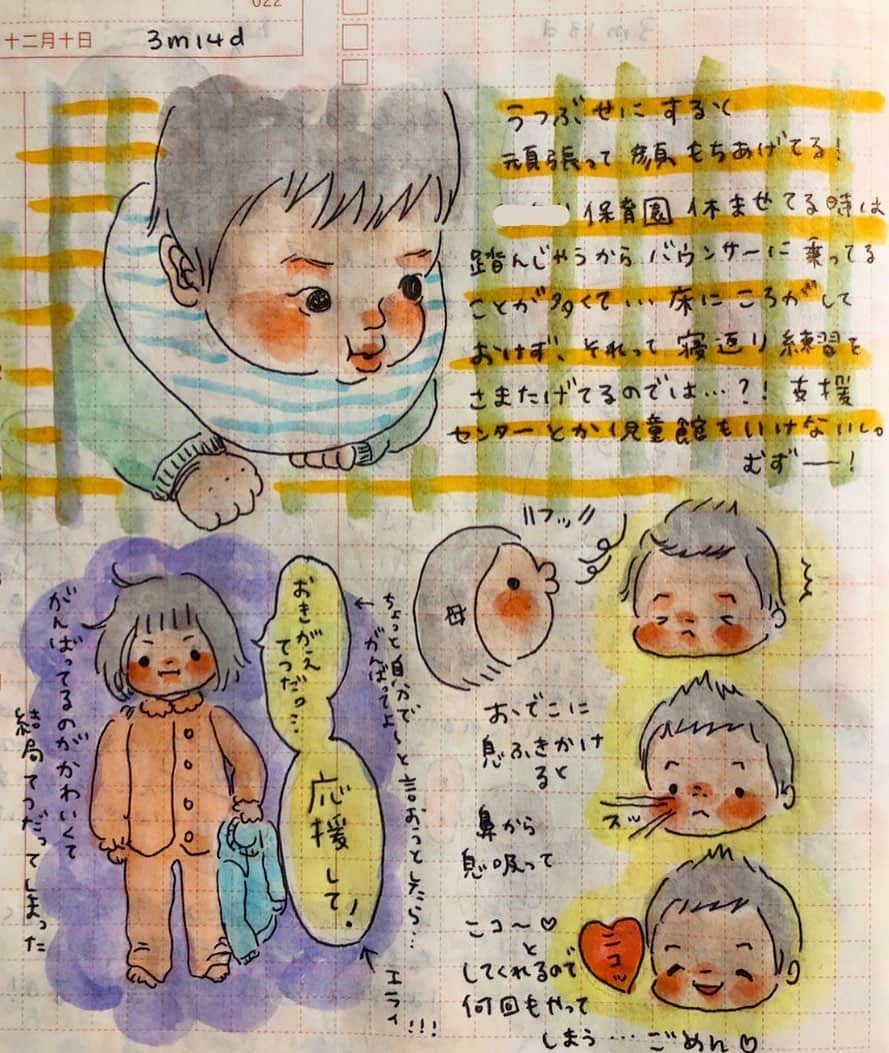 022
十二月十日
3m14d
うつぶせにすると
頑張って顔もちあげてる!
保育園休ませてる時は
踏んじゃうからバウンサーに乗ってる
ことが多くてい 床にころがして
おけず、それって寝返り練習を
さまたげてるのでは…?!支援
センターとか児童館もいけないし。
むずー!
おきがえ
てつだっ…
応援して!
←ちょっと自分で〜と言おうとしたら…
がんばってよ
↑エライ!!!
がんばってるのがかわいくて
結局てつだってしまった
フッ
母
おでこに
息ふきかけ
ると
鼻から
息吸って
スッ
ニコ〜♡
と
してくれるので
何回もやって
しまう…ごめん♡
ニコッ